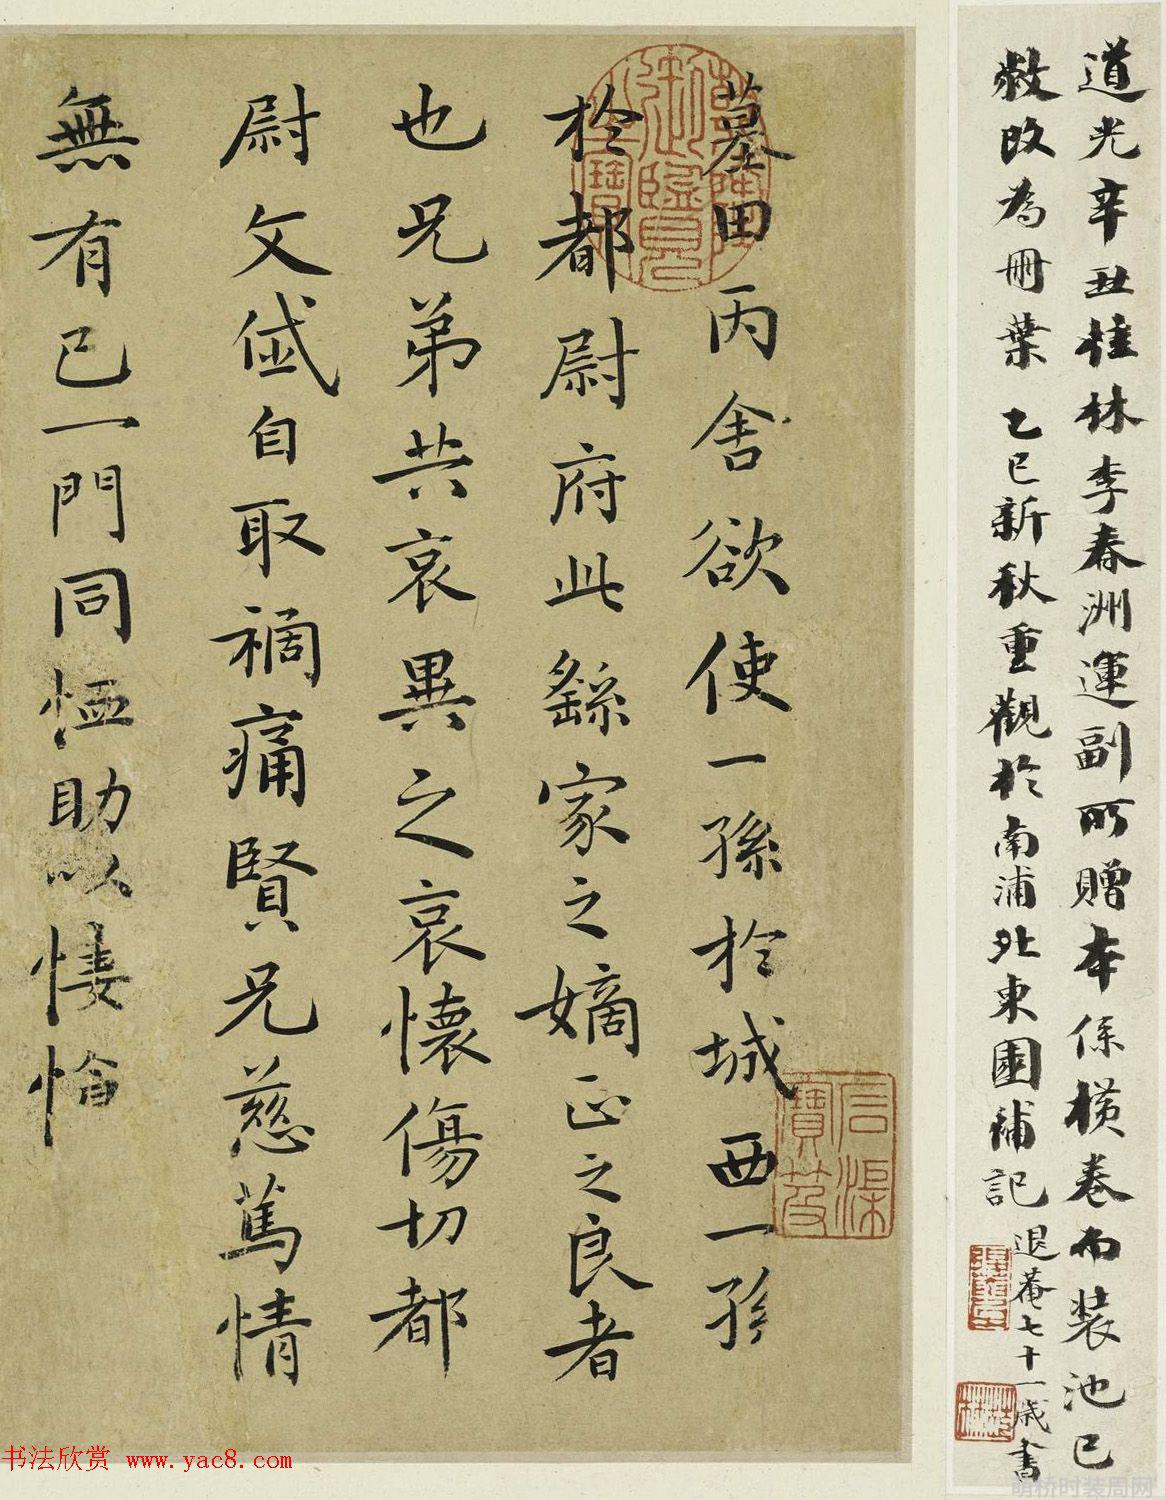 道光辛丑桂林李春洲運副所贈本係橫卷而裝池已
敝改為冊葉乙巳新秋重觀於南浦北東園補記
退菴七十一歲書
墓田丙舍欲使一孫於城西一孫
於都尉府此繇家之嫡正之良者
也兄弟共哀異之哀懷傷切都
尉文岱自取禍痛賢兄慈篤情
無有已一門同恤助以悽愴
嘉慶御覽之寶
書法欣賞 www.yac8.com
萌桥时装周网